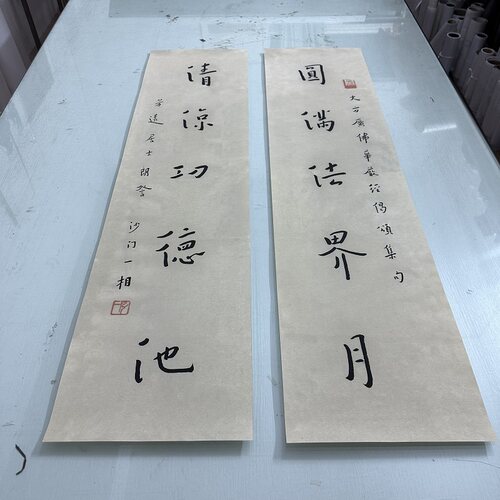 圓滿法界月
大方廣佛華嚴經偈頌集句
清涼功德池
居士
沙门一相